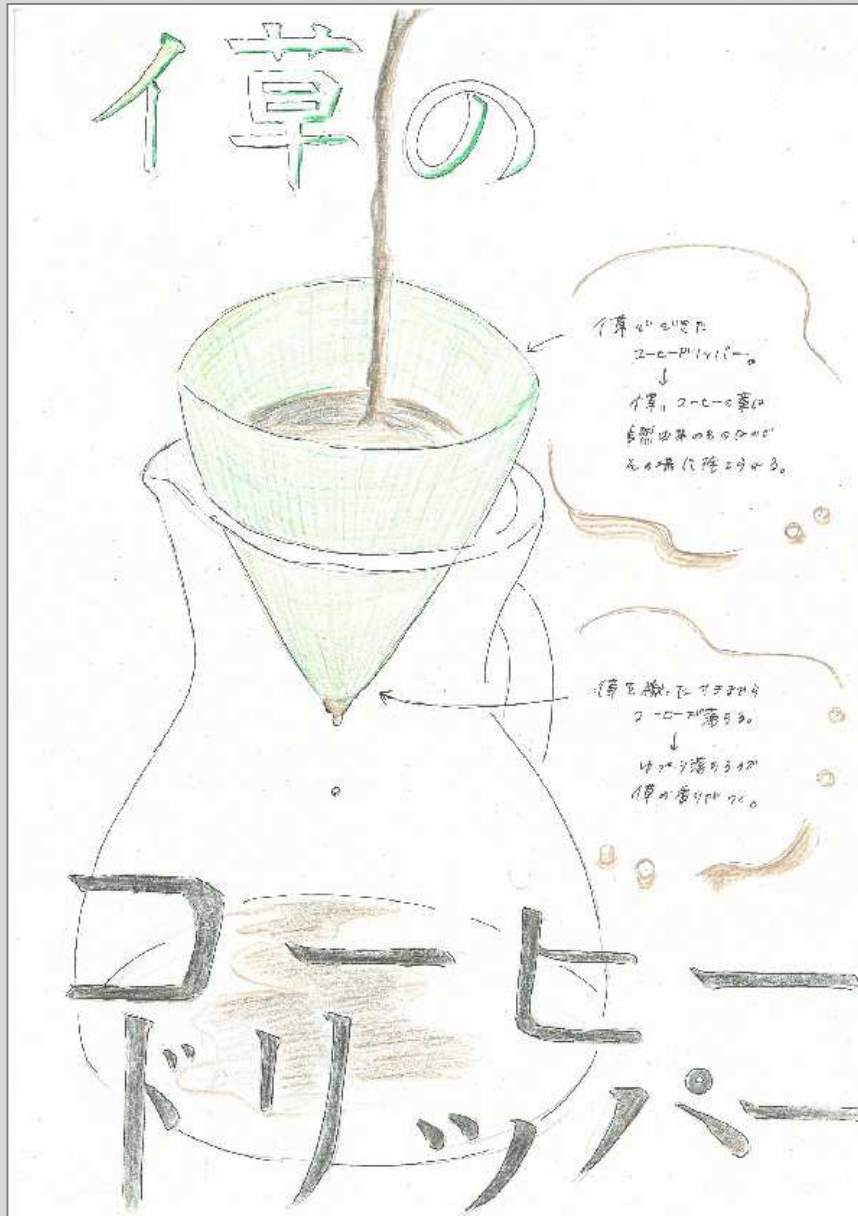 イ草の
イ草でできた
コーヒードリッパー。
↓
イ草、コーヒーの葉は
自然由来のものなので
その場に捨てられる。
イ草を織ったすきまから
コーヒーが落ちる。
↓
ゆっくり落ちるので
イ草の香りがつく。
コーヒー
ドリッパー